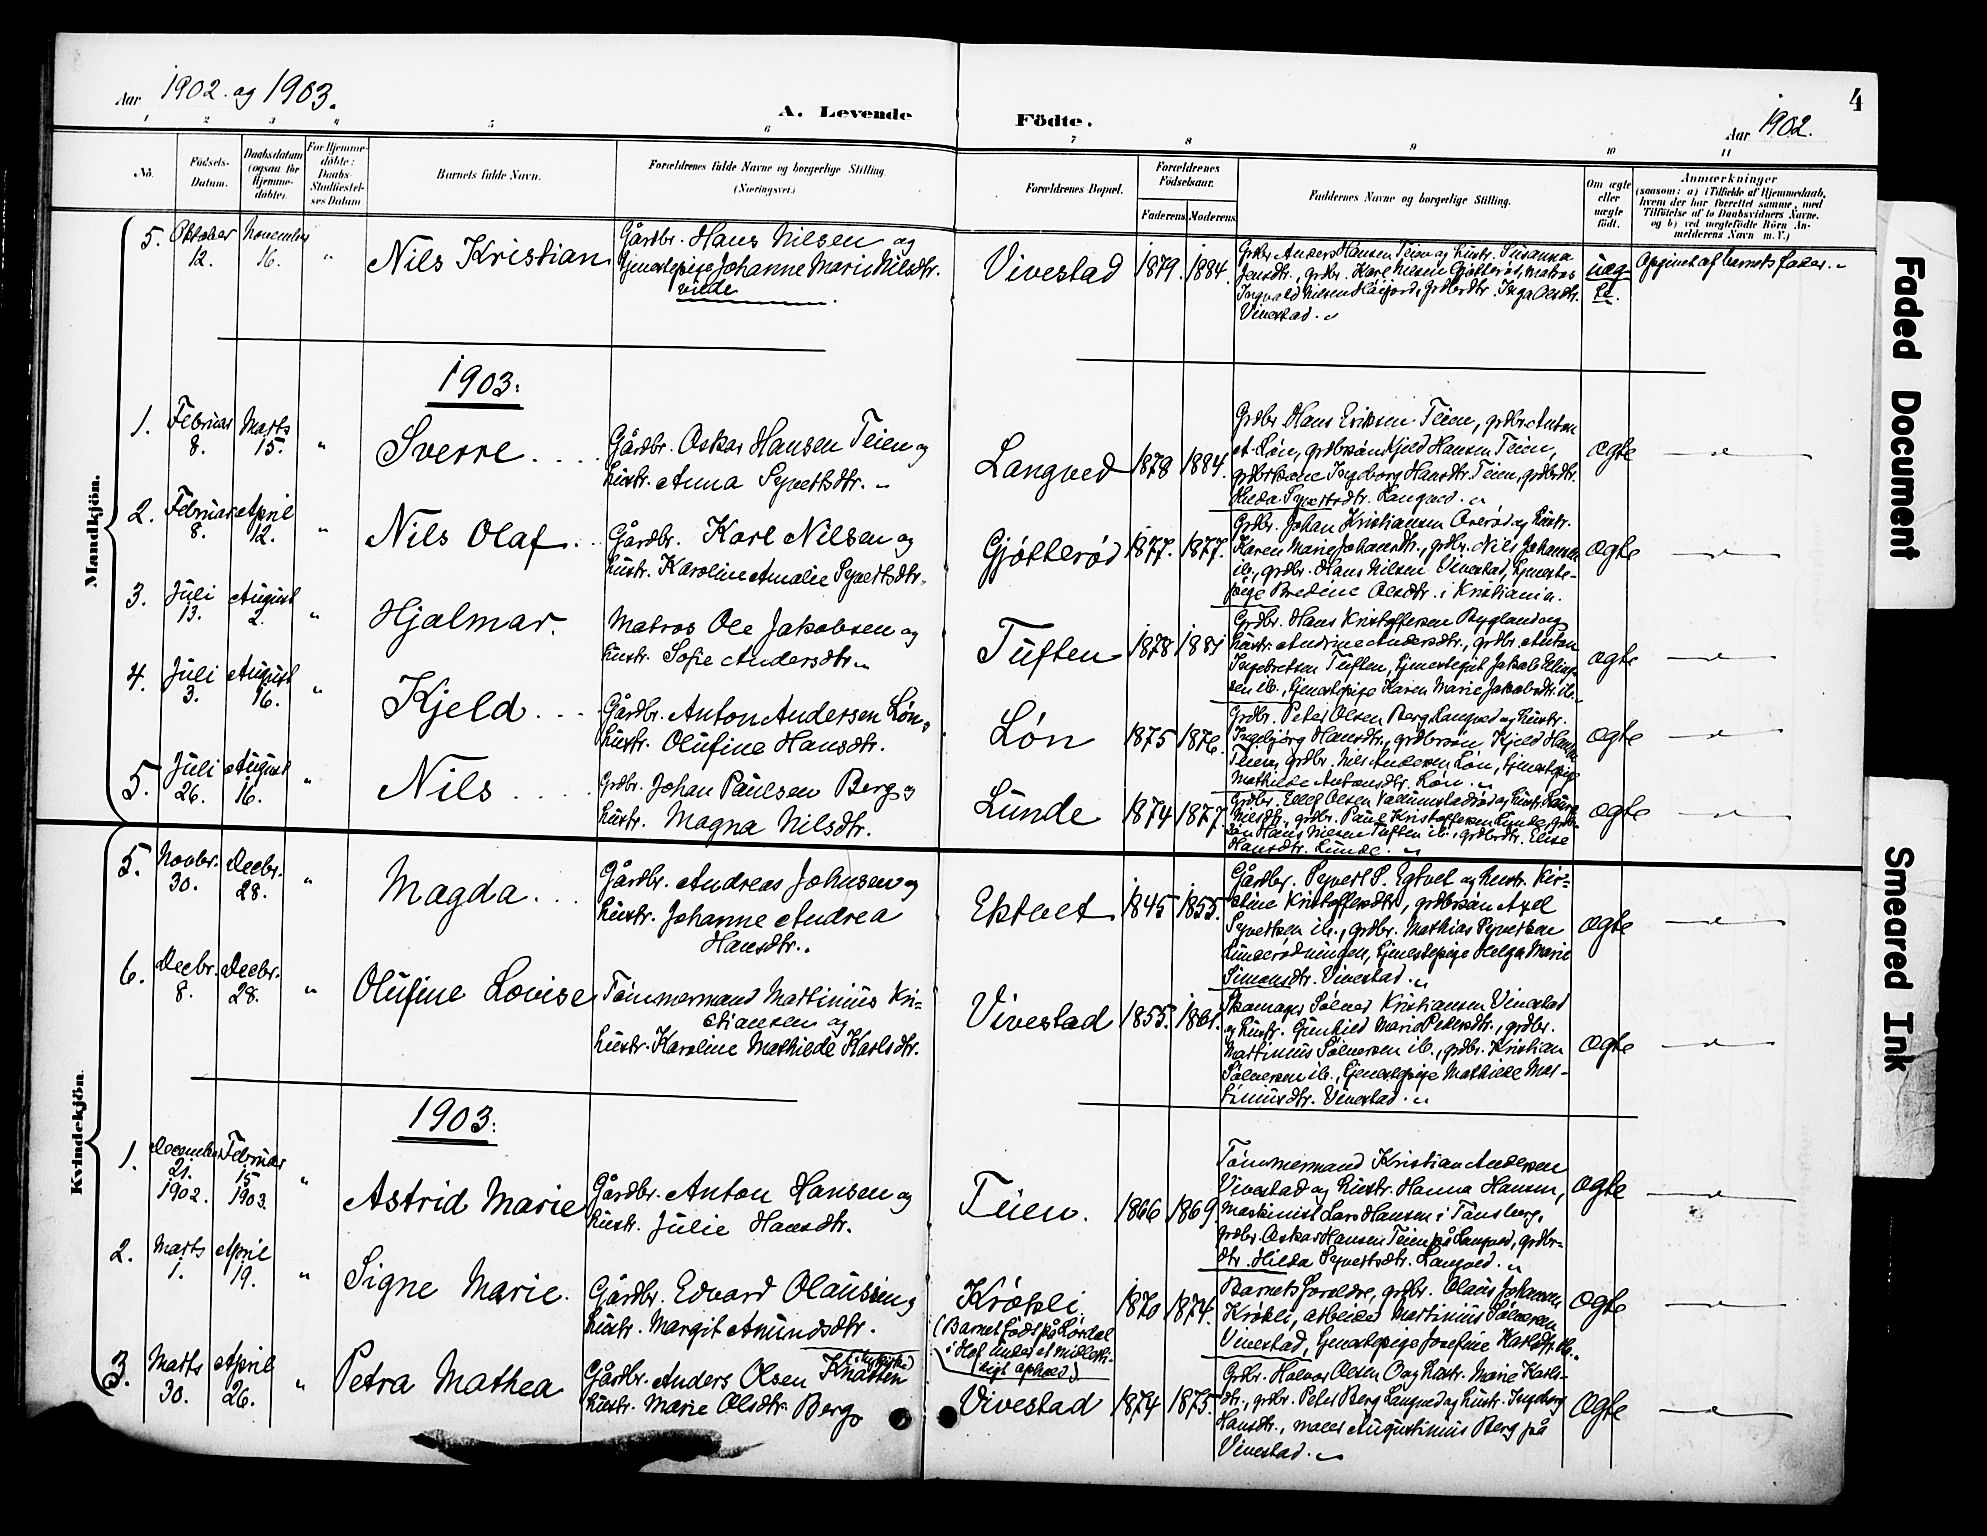 Aar 1902. og 1903.
A. Levende
Födte.
Aar 1902.
4
1 2 3 4 5 6 7 8 9 10 11
No.
Födsels-
Datum.
Daabsdatum
(ogsaa for
Hjemme-
döbte).
For Hjemme-
döbte:
Daabs-
Stadfæstel-
ses Datum
Barnets fulde Navn.
Forældrenes fulde Navne og borgerlige Stilling.
(Næringsvei.)
Forældrenes Bopæl.
Forældrenes
Födselsaar.
Faderens
Moderens
Faddernes Navne og borgerlige Stilling.
Om ægte
eller
uægte
födt.
Anmærkninger
(saasom: a) i Tilfælde af Hjemmedaab,
hvem der har forrettet samme, med
Tilföielse af to Daabsvidners Navne.
og b) ved uægtefödte Börn An-
melderens Navn m. V.)
Mandkjön.
5. Oktober 12. November 16. "
Nils Kristian
Gårdbr. Hans Nilsen og
Tjenestepige Johanne Marie Nilsdtr.
Vivestad 1879. 1884.
Grdbr. Anders Hansen Teien og hustr. Susanna
Jensdtr., grdbr. Karl Nilsen Gjøtterød, matros
Ingvald Nilsen, grdbrdtr. Inga Olsdtr.
Vivestad.
uæg-
te.
Opgivet af barnets fader.
1903.
1. Februar 8. Marts 15. "
Sverre
Gårdbr. Oskar Hansen Teien og
hustr. Anna Syvertsdtr.
Langved 1878 1884.
Grdbr. Hans Eriksen Teien, grdbr. Anton
A. Løn, grdbrsøn Kjeld Hansen Teien,
grdbrskone Ingeborg Hansdtr. Teien, grdbrdtr.
Hilda Syvertsdtr. Langved.
ægte
2. Februar 8. April 12. "
Nils Olaf
Gårdbr. Karl Nilsen og
hustr. Karoline Amalie Syvertsdtr.
Gjøtterød 1877. 1877.
Grdbr. Johan Kristiansen og hustr.
Karen Marie Johansdtr., grdbr. Nils Johansen
ib., grdbr. Hans Nilsen Vivestad, tjeneste-
pige Bredine Olsdtr. i Kristiania.
ægte
3. Juli 13. August 2. "
Hjalmar.
Matros Ole Jakobsen og
hustr. Sofie Andersdtr.
Tuften 1878 1881
Grdbr. Hans Kristoffersen Bygland og
hustr. Andrine Andersdtr., grdbr. Anton
Ingebretsen Tuften, tjenestegut Jakob Elling-
sen ib., tjenestepige Karen Marie Jakobsdtr. ib.
ægte
4. Juli 3. August 16. "
Kjeld
Gårdbr. Anton Andersen Løn og
hustr. Olufine Hansdtr.
Løn 1875 1876.
Grdbr. Peter Olsen Berg Langved og hustr.
Ingebjørg Hansdtr., grdbrsøn Kjeld Hansen
Teien, grdbr. Nils Andersen Løn, tjenestepige
Mathilde Antonsdtr. Løn.
ægte
5. Juli 26. August 16. "
Nils
Grdbr. Johan Paulsen Berg og
hustr. Magna Nilsdtr.
Lunde 1874 1877.
Grdbr. Ellef Olsen og hustr.
Nilsdtr., grdbr. Paul Kristoffersen Lunde, grdbr-
søn Hans Nilsen Tuften ib., grdbrdtr. Elise
Hansdtr. Lunde.
ægte
Kvindekjön.
5. Novbr. 30. Decbr. 28. "
Magda
Gårdbr. Andreas Johnsen og
hustr. Johanne Andrea
Hansdtr.
Ektvet 1845 1855.
Gårdbr. Syvert S. Egtvet og hustr. Kir-
stine Kristoffersdtr., grdbrsøn Axel
Syvertsen ib., grdbr. Mathias Syvertsen
Linnerødningen, tjenestepige Helga Marie
Simonsdtr. Vivestad.
ægte
6. Decbr. 8. Decbr. 28. "
Olufine Lovise
Tømmermand Martinius Kri-
stiansen og
hustr. Karoline Mathilde Karlsdtr.
Vivestad 1855. 1861.
Skomager Sølver Kristiansen Vivestad
og hustr. Gunhild Marie Petersdtr., grdbr.
Martinius Sølversen ib., grdbr. Kristian
Sølversen ib., tjenestepige Mathilde Mar-
tiniusdtr. Vivestad.
ægte
1903.
1. December 21. 1902. Februar 15 1903. "
Astrid Marie
Gårdbr. Anton Hansen og
hustr. Julie Hansdtr.
Teien. 1866 1869
Tømmermand Kristian Andersen
Vivestad og hustr. Hanna Hansen,
maskinist Lars Hansen i Tønsberg,
grdbr. Oskar Hansen Teien på Langved, grdbr-
dtr. Hilda Syvertsdtr. Langved.
ægte
2. Marts 1. April 19. "
Signe Marie.
Gårdbr. Edvard Olaussen og
hustr. Margit Amundsdtr.
Krøkli.
(Barnet født på Lørdal
i Hof under et midlerti-
digt ophold)
1870 1874.
Barnets forældre, grdbr. Olaus Johannsen
Krøkli, arbeider Martinius Sølversen
Vivestad, tjenestepige Josefine Karlsdtr. ib.
ægte
3. Marts 30. April 26. "
Petra Mathea
Gårdbr. Anders Olsen Knatten
hustr. Marie Olsdtr. Berg
Vivestad 1874 1875.
Grdbr. Halvor Olsen og hustr. Marie Karls-
dtr., grdbr. Peter Berg Langved og hustr. Ingeborg
Hansdtr., maler Augustinius Berg på
Vivestad.
ægte
Faded Document
Smeared Ink